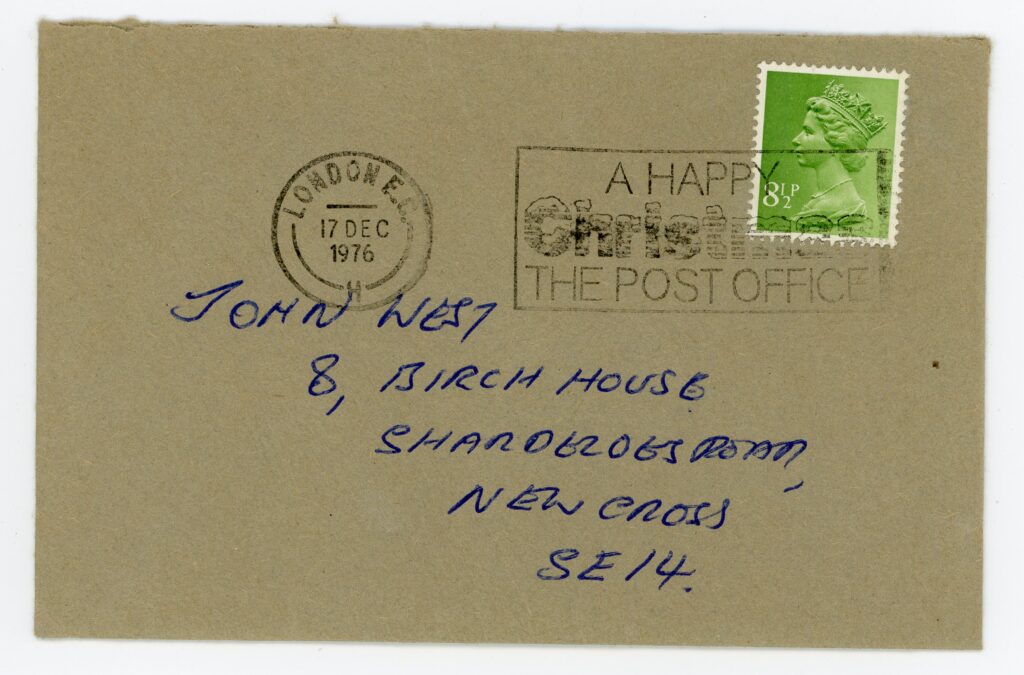 LONDON E.C.
17 DEC
1976
H
A HAPPY
Christmas
THE POST OFFICE
8½P
JOHN WEST
8, BIRCH HOUSE
SHARDELOES ROAD,
NEW CROSS
SE14.